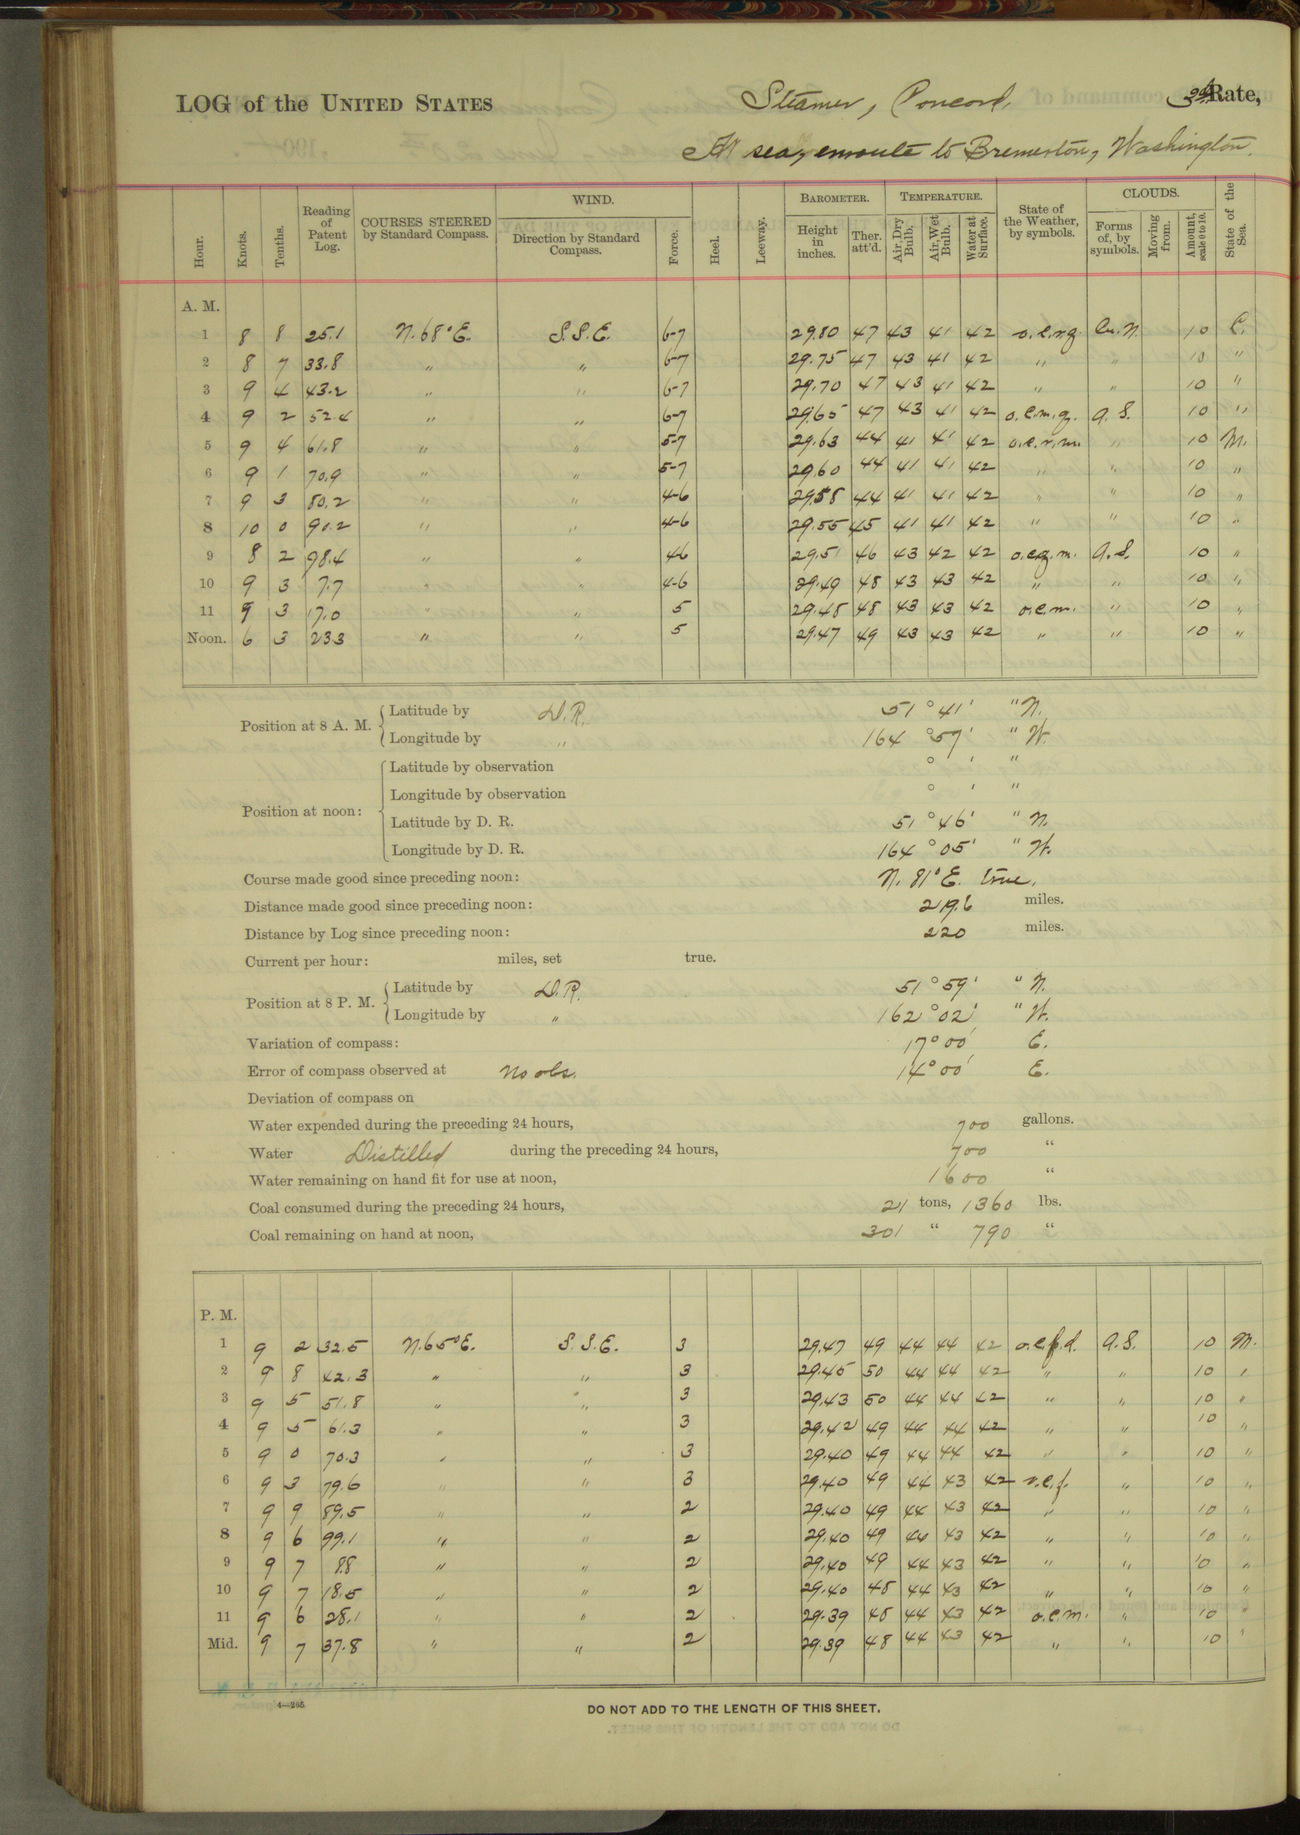 LOG of the UNITED STATES Steamer, Concord, 3d Rate,
At sea, enroute to Bremerton, Washington.
Hour. Knots. Tenths. Reading of Patent Log. COURSES STEERED by Standard Compass. WIND. Direction by Standard Compass. Force. Heel. Leeway. BAROMETER. Height in inches. Ther. att'd. TEMPERATURE. Air, Dry Bulb. Air, Wet Bulb. Water at Surface. State of the Weather, by symbols. CLOUDS. Forms of, by symbols. Moving from. Amount, scale 0 to 10. State of the Sea.
A. M.
1 8 8 25.1 N. 68° E. S.S.E. 6-7 29.80 47 43 41 42 o.c.r.q. Cu. N. 10 C.
2 8 7 33.8 " " 6-7 29.75 47 43 41 42 " " 10 "
3 9 4 43.2 " " 6-7 29.70 47 43 41 42 " " 10 "
4 9 2 52.4 " " 6-7 29.65 47 43 41 42 o.c.m.q. A. S. 10 "
5 9 4 61.8 " " 5-7 29.63 44 41 41 42 o.c.r.m. " 10 M.
6 9 1 70.9 " " 5-7 29.60 44 41 41 42 " " 10 "
7 9 3 80.2 " " 4-6 29.58 44 41 41 42 " " 10 "
8 10 0 90.2 " " 4-6 29.55 45 41 41 42 " " 10 "
9 8 2 98.4 " " 46 29.51 46 43 42 42 o.c.q.m. A. S. 10 "
10 9 3 7.7 " " 4-6 29.49 48 43 43 42 " " 10 "
11 9 3 17.0 " " 5 29.48 48 43 43 42 o.c.m. " 10 "
Noon. 6 3 233 " " 5 29.47 49 43 43 42 " " 10 "
Position at 8 A. M. Latitude by D.R. 51° 41' " N.
Longitude by " 164° 57' " W.
Position at noon: Latitude by observation ° ' "
Longitude by observation ° ' "
Latitude by D. R. 51° 46' " N.
Longitude by D. R. 164° 05' " W.
Course made good since preceding noon: N. 81° E. true.
Distance made good since preceding noon: 219.6 miles.
Distance by Log since preceding noon: 220 miles.
Current per hour: miles, set true.
Position at 8 P. M. Latitude by D.R. 51° 59' " N.
Longitude by " 162° 02' " W.
Variation of compass: 17° 00' E.
Error of compass observed at No obs. 14° 00' E.
Deviation of compass on
Water expended during the preceding 24 hours, 700 gallons.
Water Distilled during the preceding 24 hours, 700 "
Water remaining on hand fit for use at noon, 1600 "
Coal consumed during the preceding 24 hours, 21 tons, 1360 lbs.
Coal remaining on hand at noon, 301 " 790 "
P. M.
1 9 2 32.5 N. 65° E. S.S.E. 3 29.47 49 44 44 42 o.c.f.d. A. S. 10 M.
2 9 8 42.3 " " 3 29.45 50 44 44 42 " " 10 "
3 9 5 51.8 " " 3 29.43 50 44 44 42 " " 10 "
4 9 5 61.3 " " 3 29.42 49 44 44 42 " " 10 "
5 9 0 70.3 " " 3 29.40 49 44 44 42 " " 10 "
6 9 3 79.6 " " 3 29.40 49 44 43 42 o.c.f. " 10 "
7 9 9 89.5 " " 2 29.40 49 44 43 42 " " 10 "
8 9 6 99.1 " " 2 29.40 49 44 43 42 " " 10 "
9 9 7 8.8 " " 2 29.40 49 44 43 42 " " 10 "
10 9 7 18.5 " " 2 29.40 48 44 43 42 " " 10 "
11 9 6 28.1 " " 2 29.39 48 44 43 42 o.c.m. " 10 "
Mid. 9 7 37.8 " " 2 29.39 48 44 43 42 " " 10 "
4—265
DO NOT ADD TO THE LENGTH OF THIS SHEET.